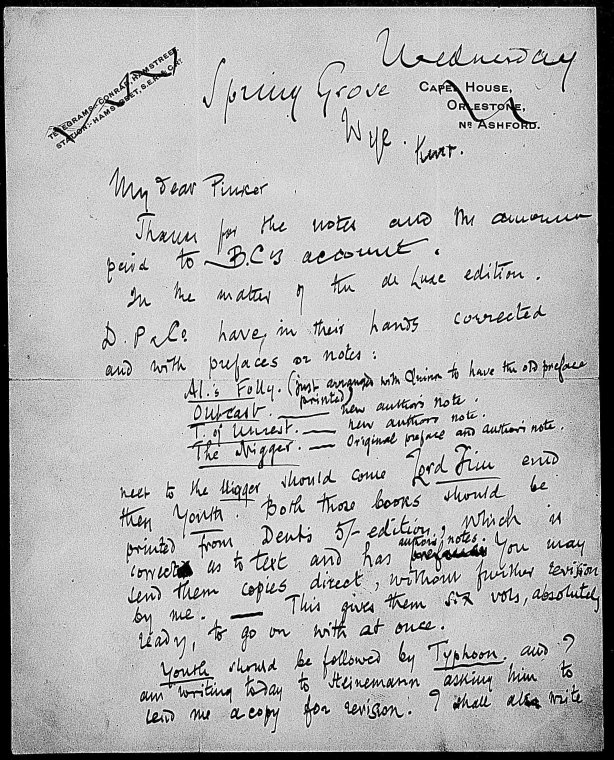 Wednesday
TELEGRAMS:- CONRAD, HAMSTREET.
STATION:- HAMSTREET, S.E.R. & C. RY.
Spring Grove
CAPEL HOUSE,
ORLESTONE,
NR ASHFORD.
Wye. Kent.
My dear Pinker
Thanks for the notes and the amount
paid to B.C's account.
In the matter of the de Luxe edition.
D. P & Co have, in their hands corrected
and with prefaces or notes:
Al.'s Folly. (just arranged with Quinn to have the old preface
printed)
Outcast. — new author's note.
T. of Unrest. — new author's note.
The Nigger. — Original preface and author's note.
next to the Nigger should come Lord Jim and
then Youth. Both those books should be
printed from Dent's 5/- edition, which is
correct as to text and has author's notes. You may
send them copies direct, without further revision
by me. — This gives them six vols, absolutely
ready, to go on with at once.
Youth should be followed by Typhoon and I
am writing today to Heinemann asking him to
send me a copy for revision. I shall also write